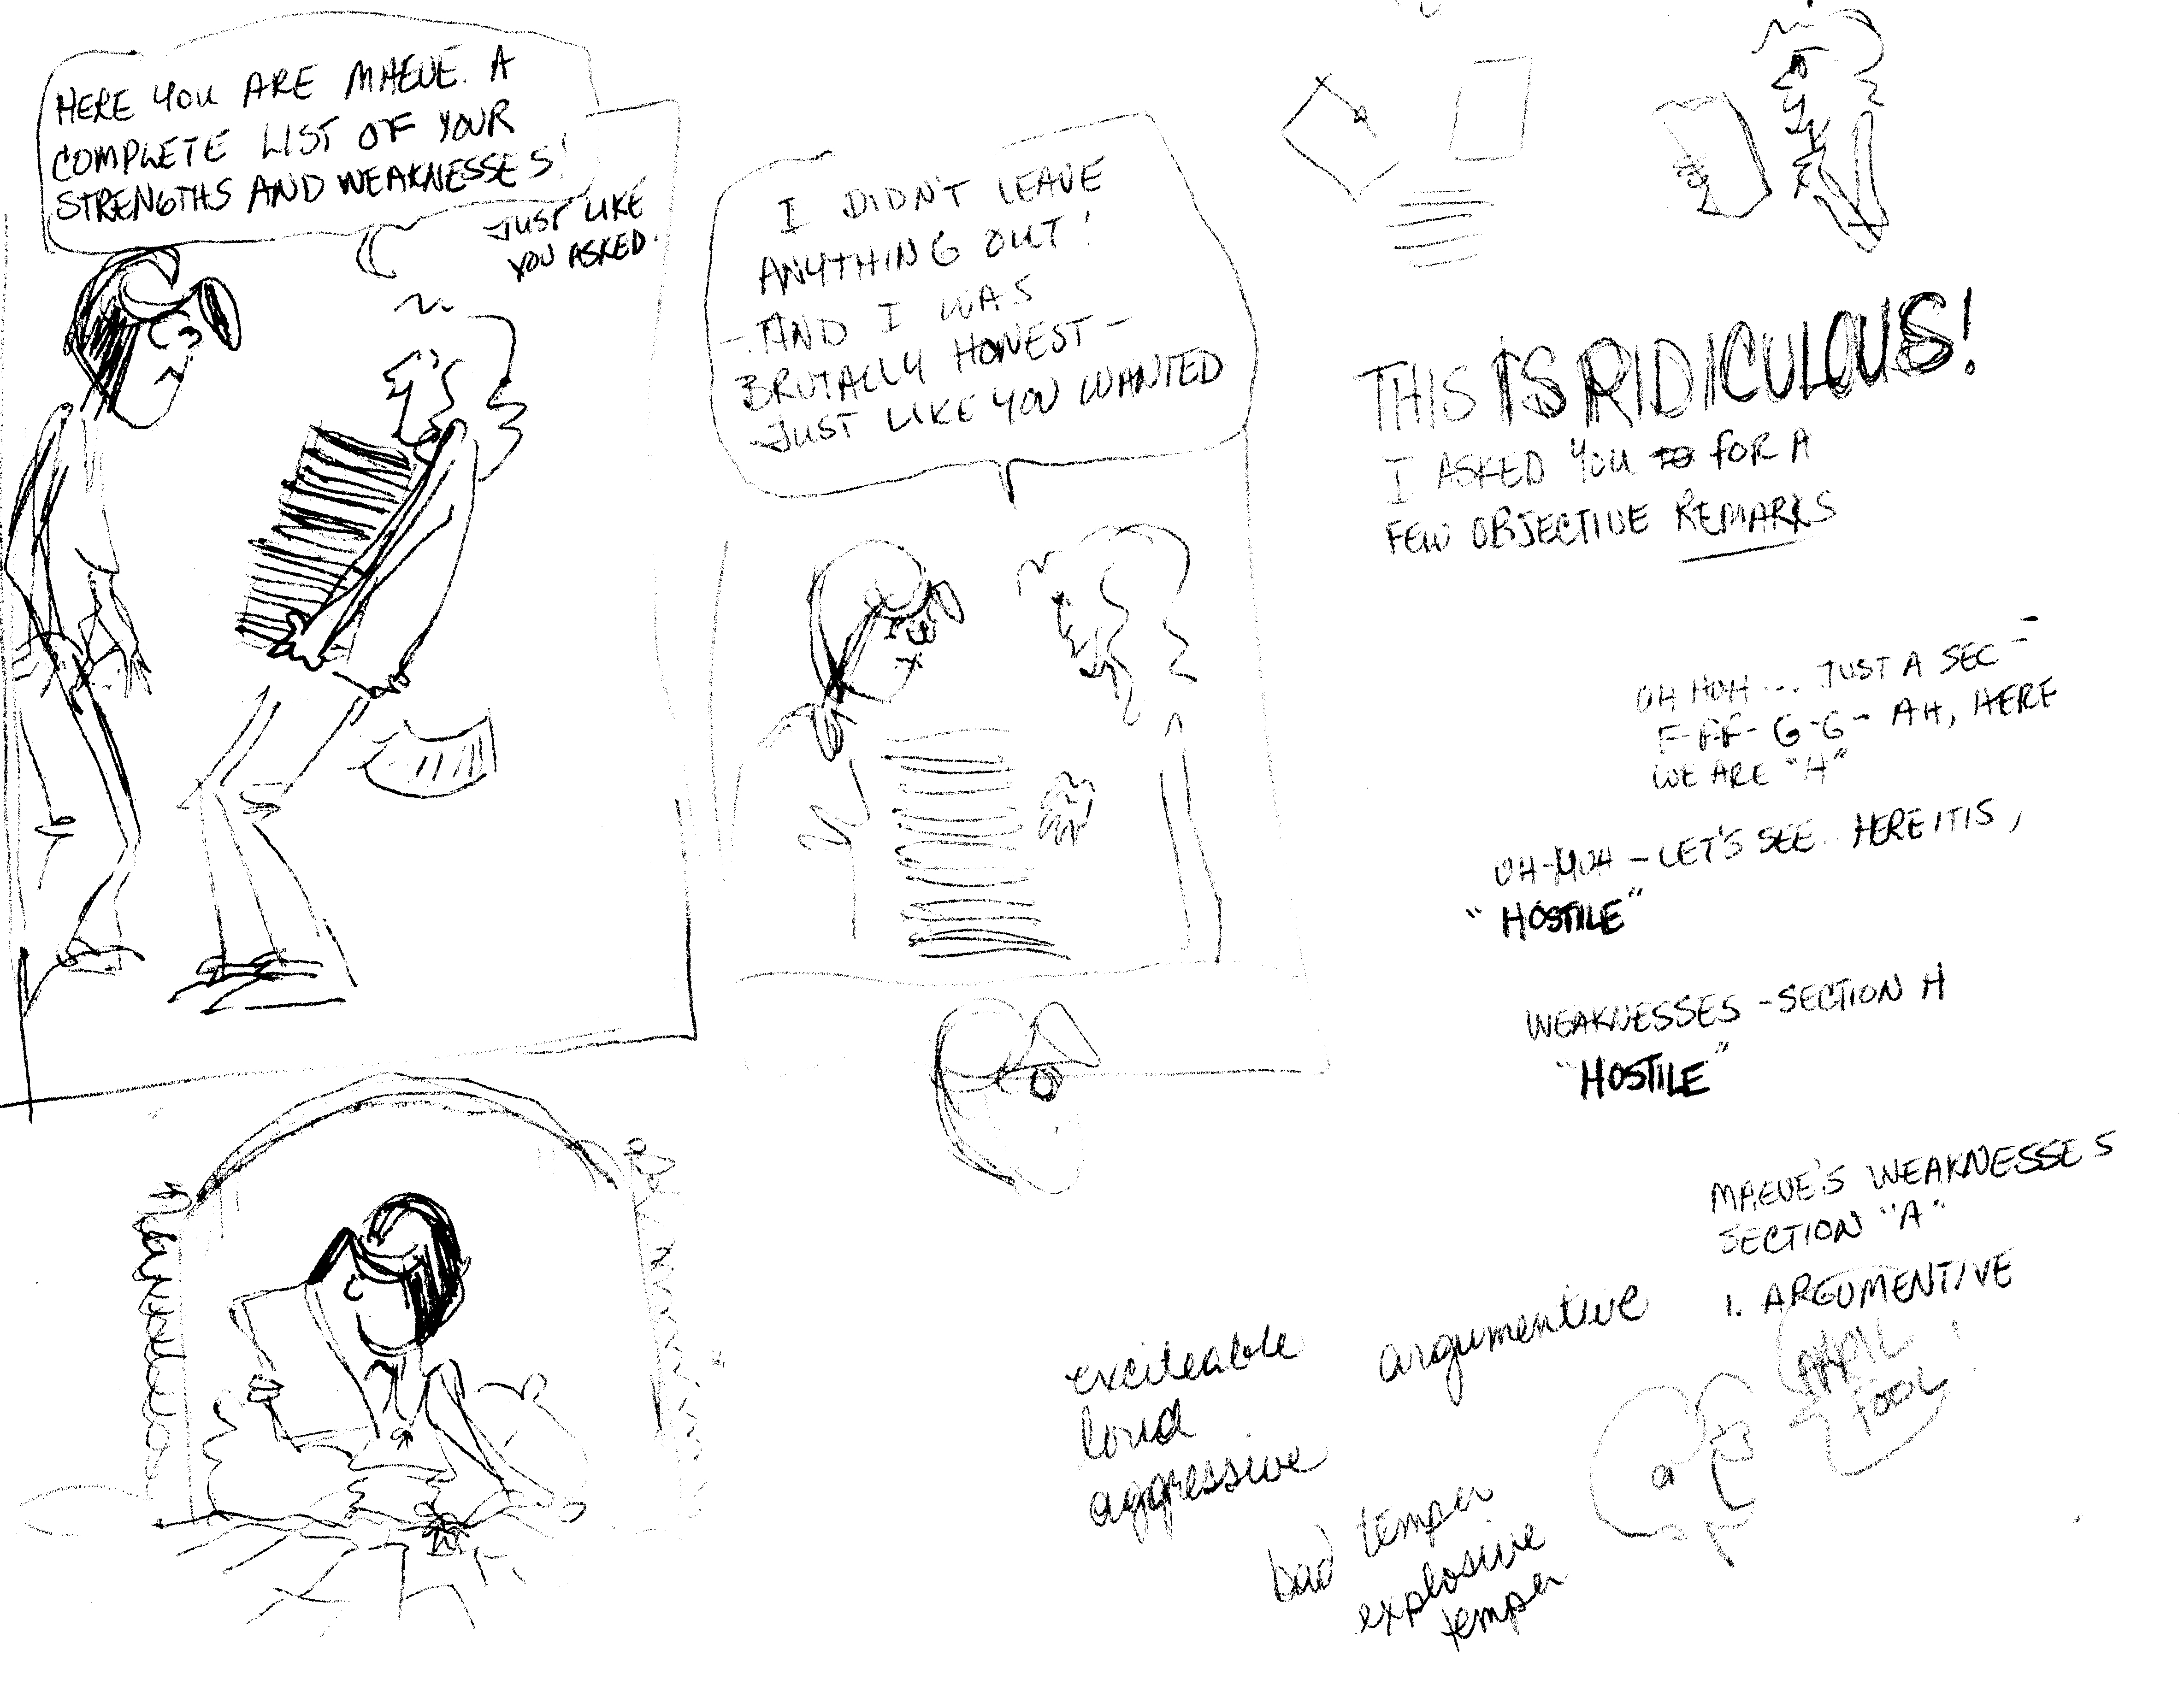 HERE YOU ARE MAEVE. A
COMPLETE LIST OF YOUR
STRENGTHS AND WEAKNESSES!
JUST LIKE
YOU ASKED.
I DIDN'T LEAVE
ANYTHING OUT!
- AND I WAS
BRUTALLY HONEST -
JUST LIKE YOU WANTED
THIS IS RIDICULOUS!
I ASKED YOU FOR A
FEW OBJECTIVE REMARKS
UH HUH... JUST A SEC -
F-F-F- G-G- AH, HERE
WE ARE "H"
UH-HUH - LET'S SEE.. HERE IT IS,
"HOSTILE"
WEAKNESSES - SECTION H
"HOSTILE"
MAEVE'S WEAKNESSES
SECTION "A"
1. ARGUMENTIVE
exciteable
loud
aggressive
argumentive
bad temper
explosive
temper
APRIL
FOOL